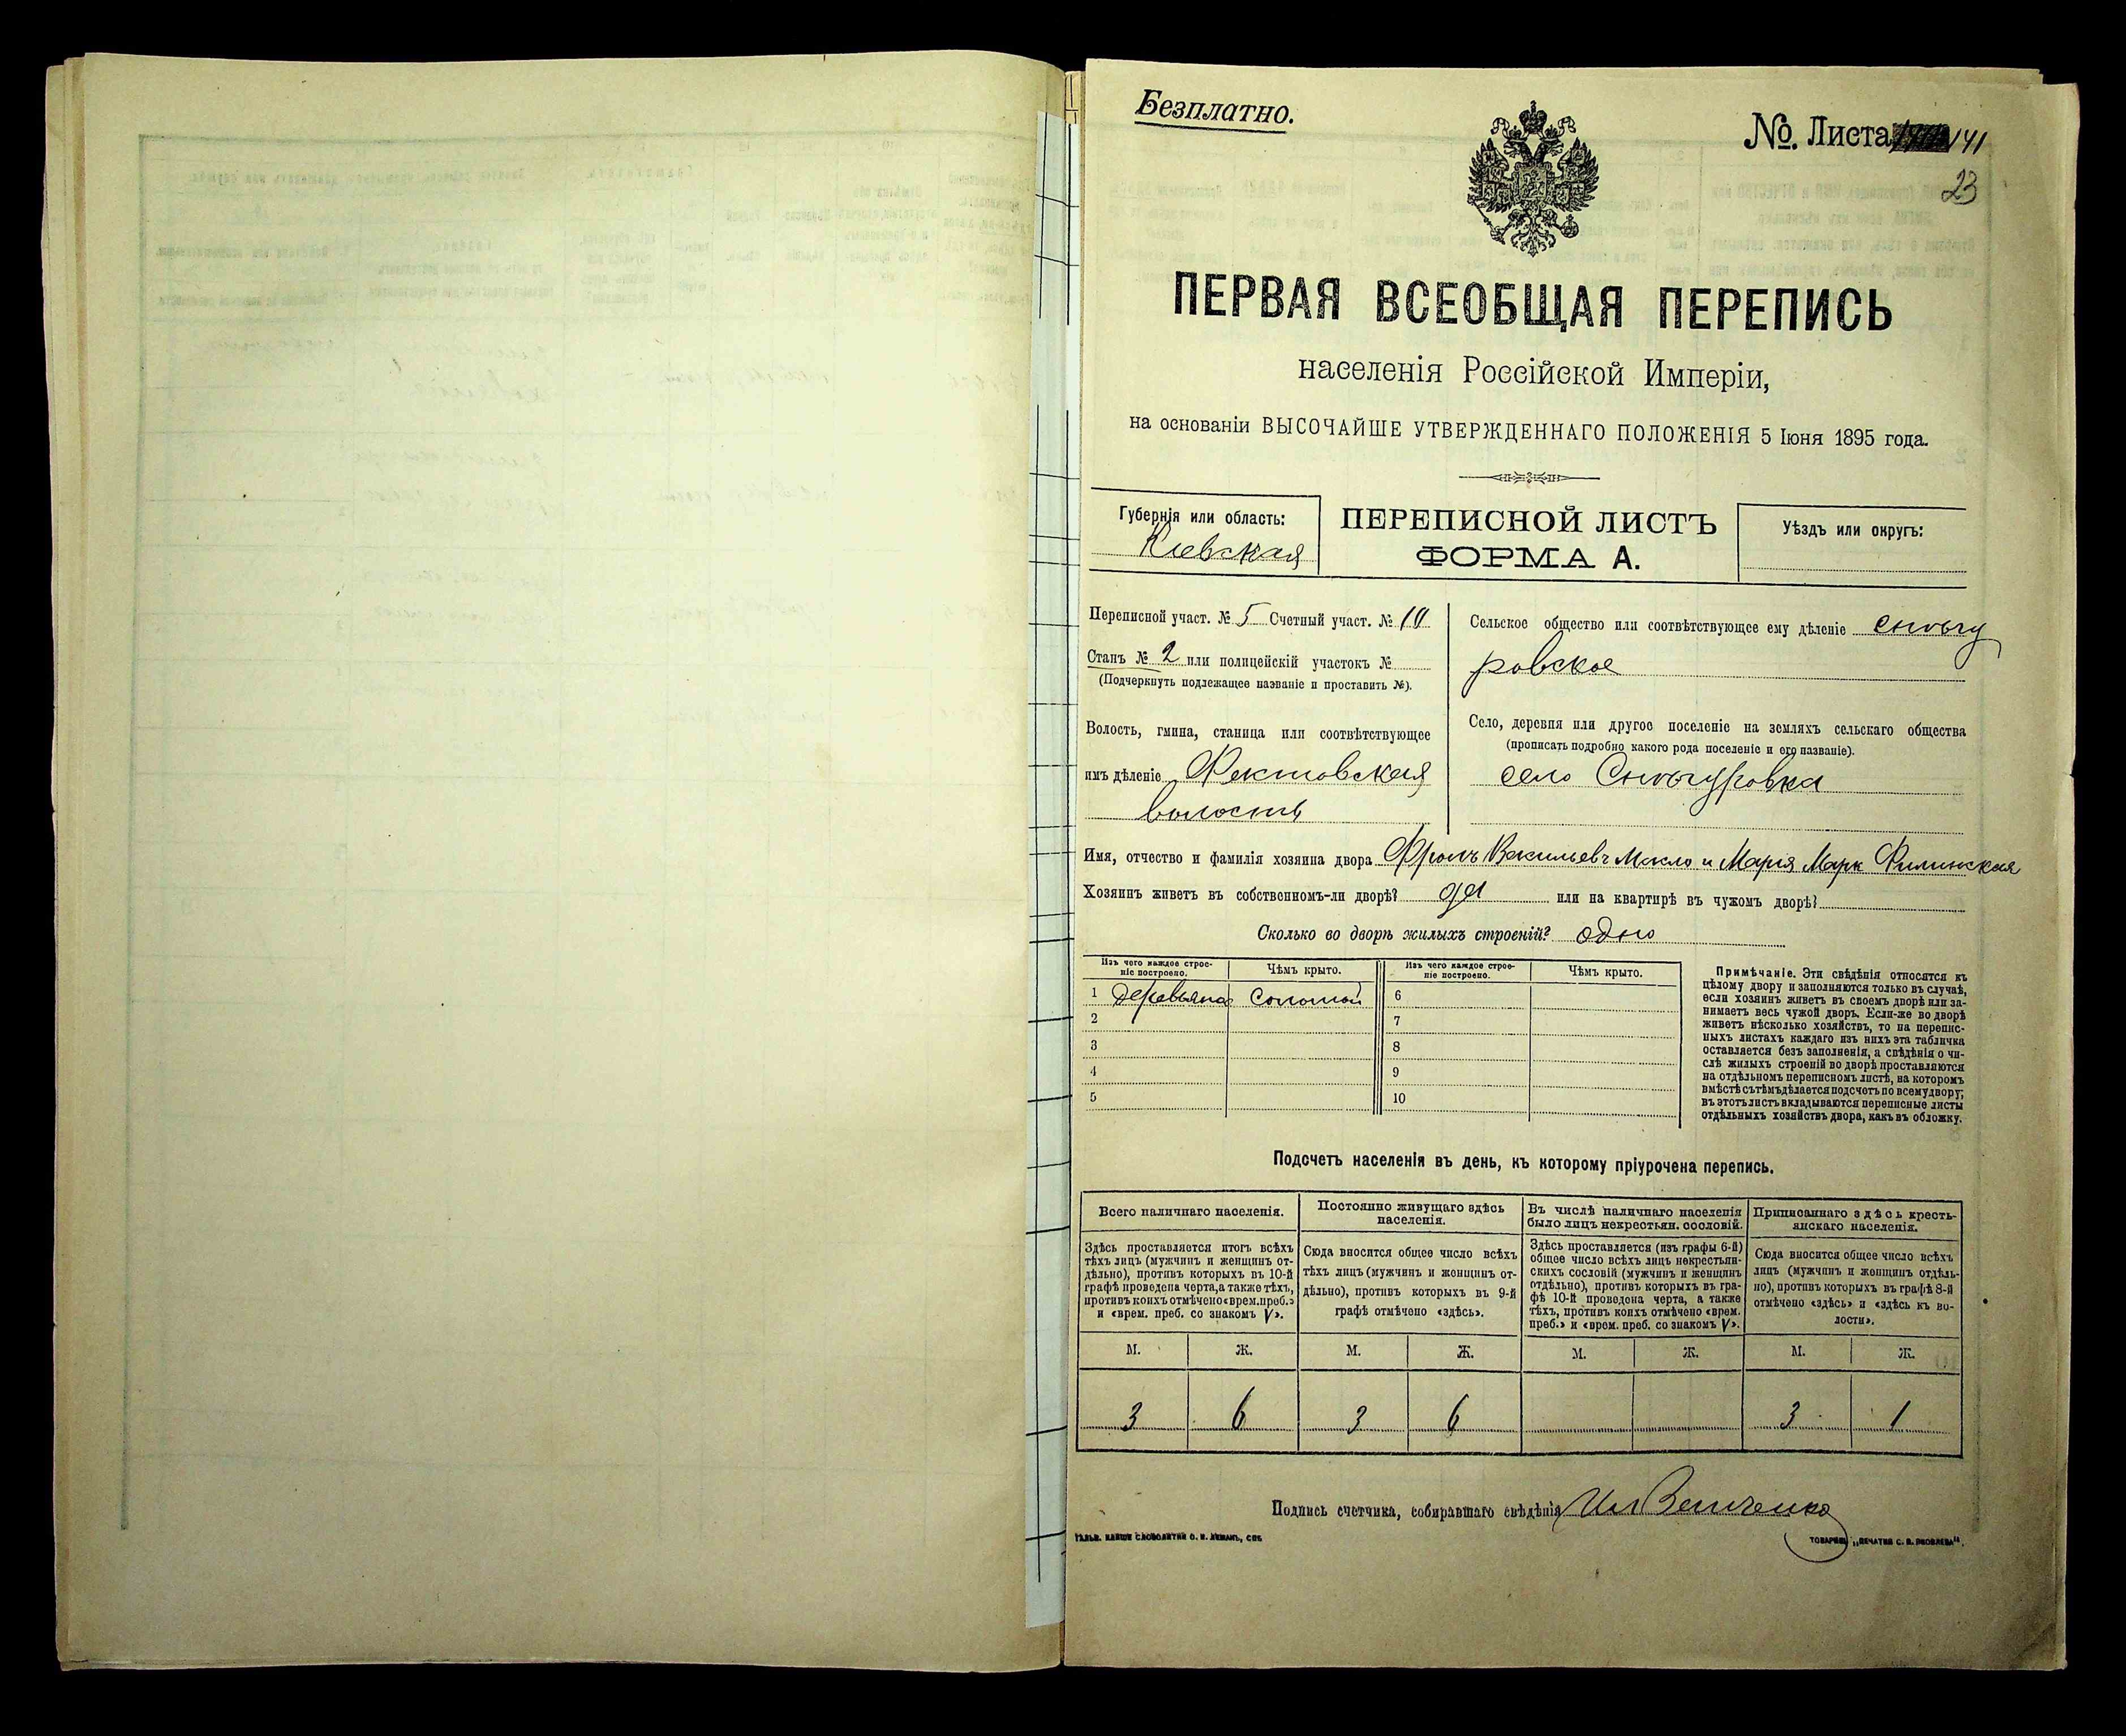 Безплатно.
№. Листа 141
23
ПЕРВАЯ ВСЕОБЩАЯ ПЕРЕПИСЬ
населенія Россійской Имперіи,
на основаніи ВЫСОЧАЙШЕ УТВЕРЖДЕННАГО ПОЛОЖЕНІЯ 5 Іюня 1895 года.
Губернія или область:
Кіевская
ПЕРЕПИСНОЙ ЛИСТЪ
ФОРМА А.
Уѣздъ или округъ:
Переписной участ. № 5 Счетный участ. № 10
Станъ № 2 или полицейскій участокъ №
(Подчеркнуть подлежащее названіе и проставить №).
Волость, гмина, станица или соотвѣтствующее
имъ дѣленіе
волость
Сельское общество или соотвѣтствующее ему дѣленіе Снѣгу
ровское
Село, деревня или другое поселеніе на земляхъ сельскаго общества
(прописать подробно какого рода поселеніе и его названіе).
село Снѣгуровка
Имя, отчество и фамилія хозяина двора Фролъ Васильевъ Масло и Марія Марк Филинская
Хозяинъ живетъ въ собственномъ-ли дворѣ? да или на квартирѣ въ чужомъ дворѣ?
Сколько во дворѣ жилыхъ строеній? одно
Изъ чего каждое строе-
ніе построено.
Чѣмъ крыто.
Изъ чего каждое строе-
ніе построено.
Чѣмъ крыто.
1 деревяна соломой 6
2 7
3 8
4 9
5 10
Примѣчаніе. Эти свѣдѣнія относятся къ
цѣлому двору и заполняются только въ случаѣ,
если хозяинъ живетъ въ своемъ дворѣ или за-
нимаетъ весь чужой дворъ. Если-же во дворѣ
живетъ нѣсколько хозяйствъ, то на перепис-
ныхъ листахъ каждаго изъ нихъ эта табличка
оставляется безъ заполненія, а свѣдѣнія о чи-
слѣ жилыхъ строеній во дворѣ проставляются
на отдѣльномъ переписномъ листѣ, на которомъ
вмѣстѣ съ тѣмъ дѣлается подсчетъ по всему двору;
въ этотъ листъ вкладываются переписные листы
отдѣльныхъ хозяйствъ двора, какъ въ обложку.
Подсчетъ населенія въ день, къ которому пріурочена перепись.
Всего наличнаго населенія.
Здѣсь проставляется итогъ всѣхъ
тѣхъ лицъ (мужчинъ и женщинъ от-
дѣльно), противъ которыхъ въ 10-й
графѣ проведена черта, а также тѣхъ,
противъ коихъ отмѣчено «врем. преб.»
и «врем. преб. со знакомъ V».
Постоянно живущаго здѣсь
населенія.
Сюда вносится общее число всѣхъ
тѣхъ лицъ (мужчинъ и женщинъ от-
дѣльно), противъ которыхъ въ 9-й
графѣ отмѣчено «здѣсь».
Въ числѣ наличнаго населенія
было лицъ некрестьян. сословій.
Здѣсь проставляется (изъ графы 6-й)
общее число всѣхъ лицъ некрестьян-
скихъ сословій (мужчинъ и женщинъ
отдѣльно), противъ которыхъ въ гра-
фѣ 10-й проведена черта, а также
тѣхъ, противъ коихъ отмѣчено «врем.
преб.» и «врем. преб. со знакомъ V».
Приписаннаго здѣсь кресть-
янскаго населенія.
Сюда вносится общее число всѣхъ
лицъ (мужчинъ и женщинъ отдѣль-
но), противъ которыхъ въ графѣ 8-й
отмѣчено «здѣсь» и «здѣсь къ во-
лости».
М. Ж. М. Ж. М. Ж. М. Ж.
3 6 3 6 3 1
Подпись счетчика, собиравшаго свѣдѣнія
СЛОВОЛИТНИ О. И. ЛЕМАНЪ, СПБ.
ТОВАРИЩ. „ПЕЧАТНЯ С. П. ЯКОВЛЕВА“.